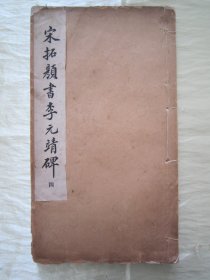 宋拓顏書李元靖碑 四